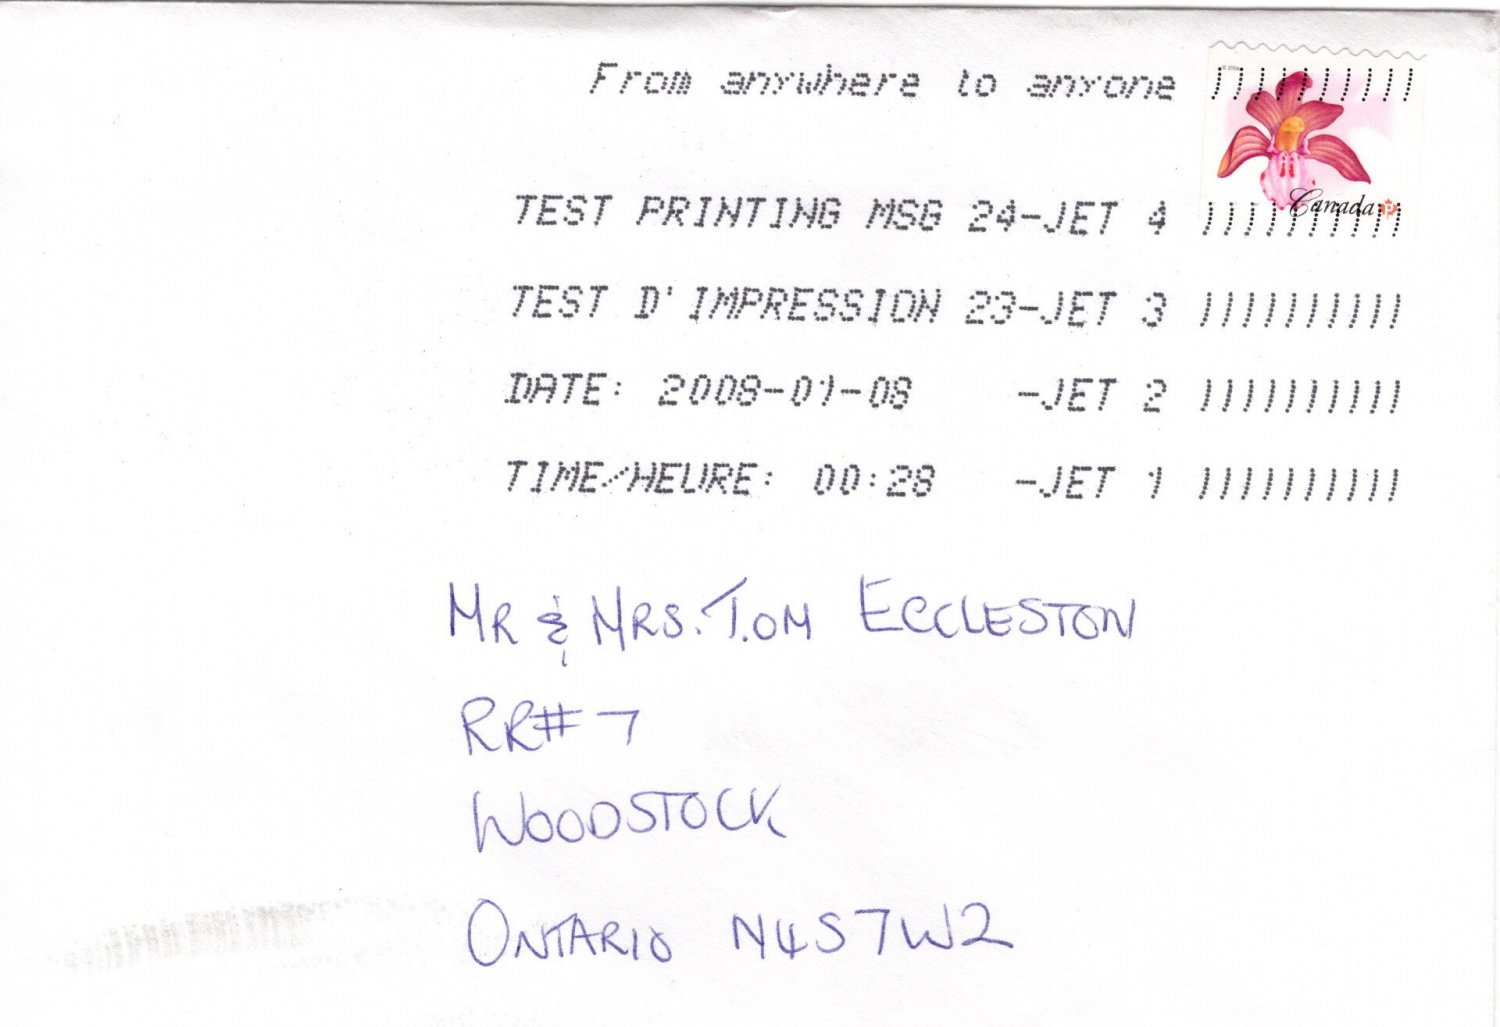 From anywhere to anyone
© 2006
TEST PRINTING MSG 24-JET 4 ))))))))))
Canada P
TEST D'IMPRESSION 23-JET 3 ))))))))))
DATE: 2008-01-08 -JET 2 ))))))))))
TIME/HEURE: 00:28 -JET 1 ))))))))))
MR & MRS. TOM ECCLESTON
RR# 7
WOODSTOCK
ONTARIO N4S7W2